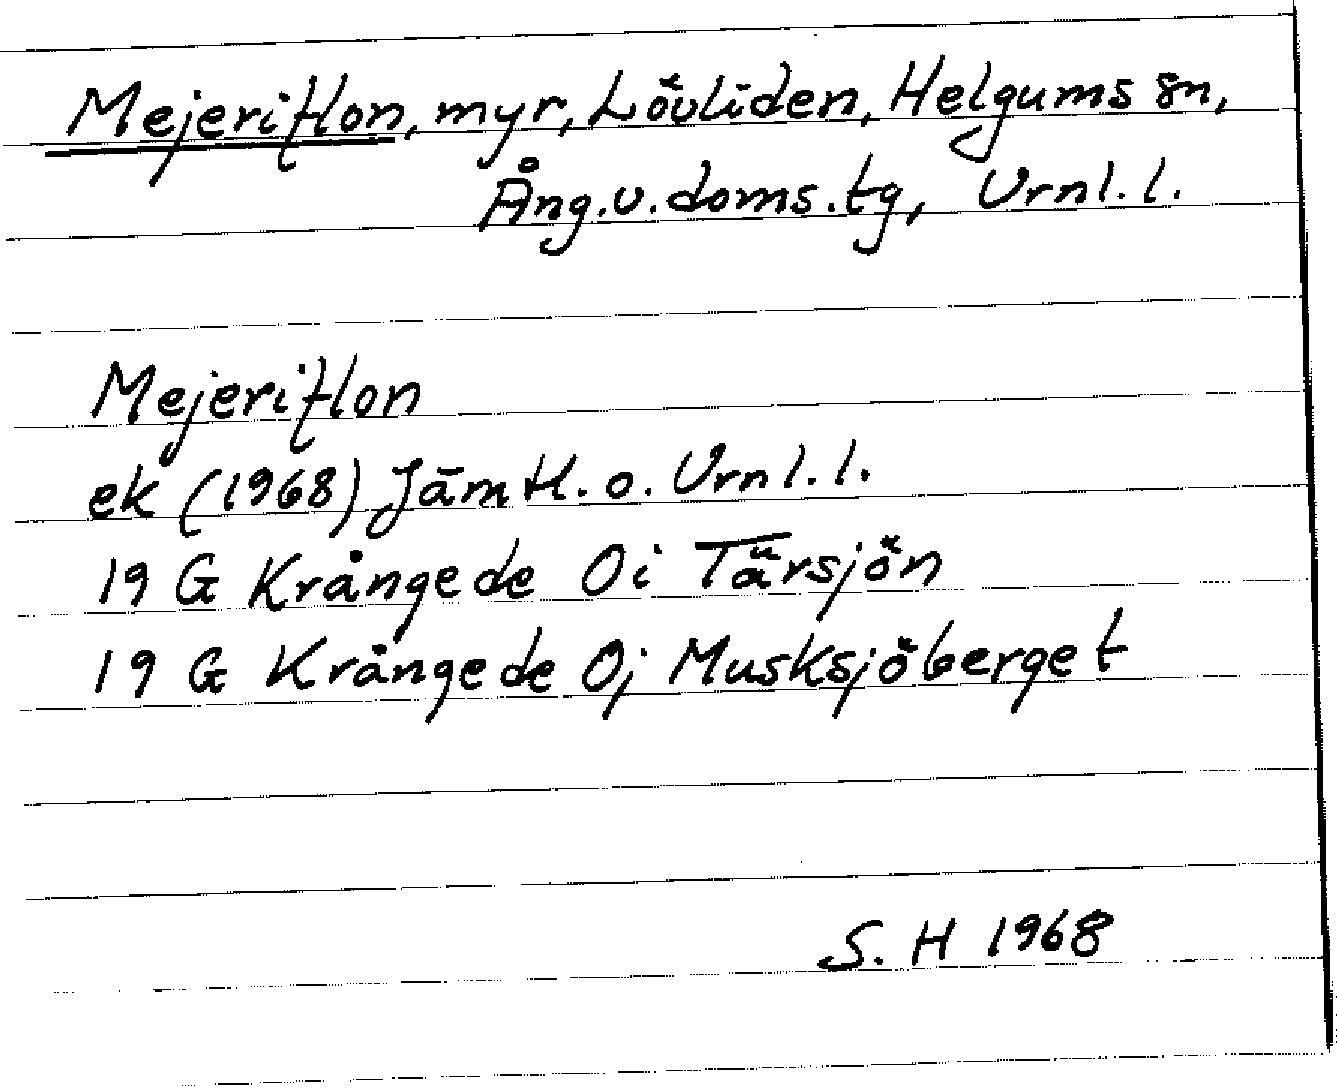 Mejeriflon, myr, Lövliden, Helgums sn,
Ång.v.doms.tg, Vrnl.l.
Mejeriflon
ek (1968) Jämtl.o.Vrnl.l.
19 G Krångede Oi Tärsjön
19 G Krångede Oj Musksjöberget
S.H 1968